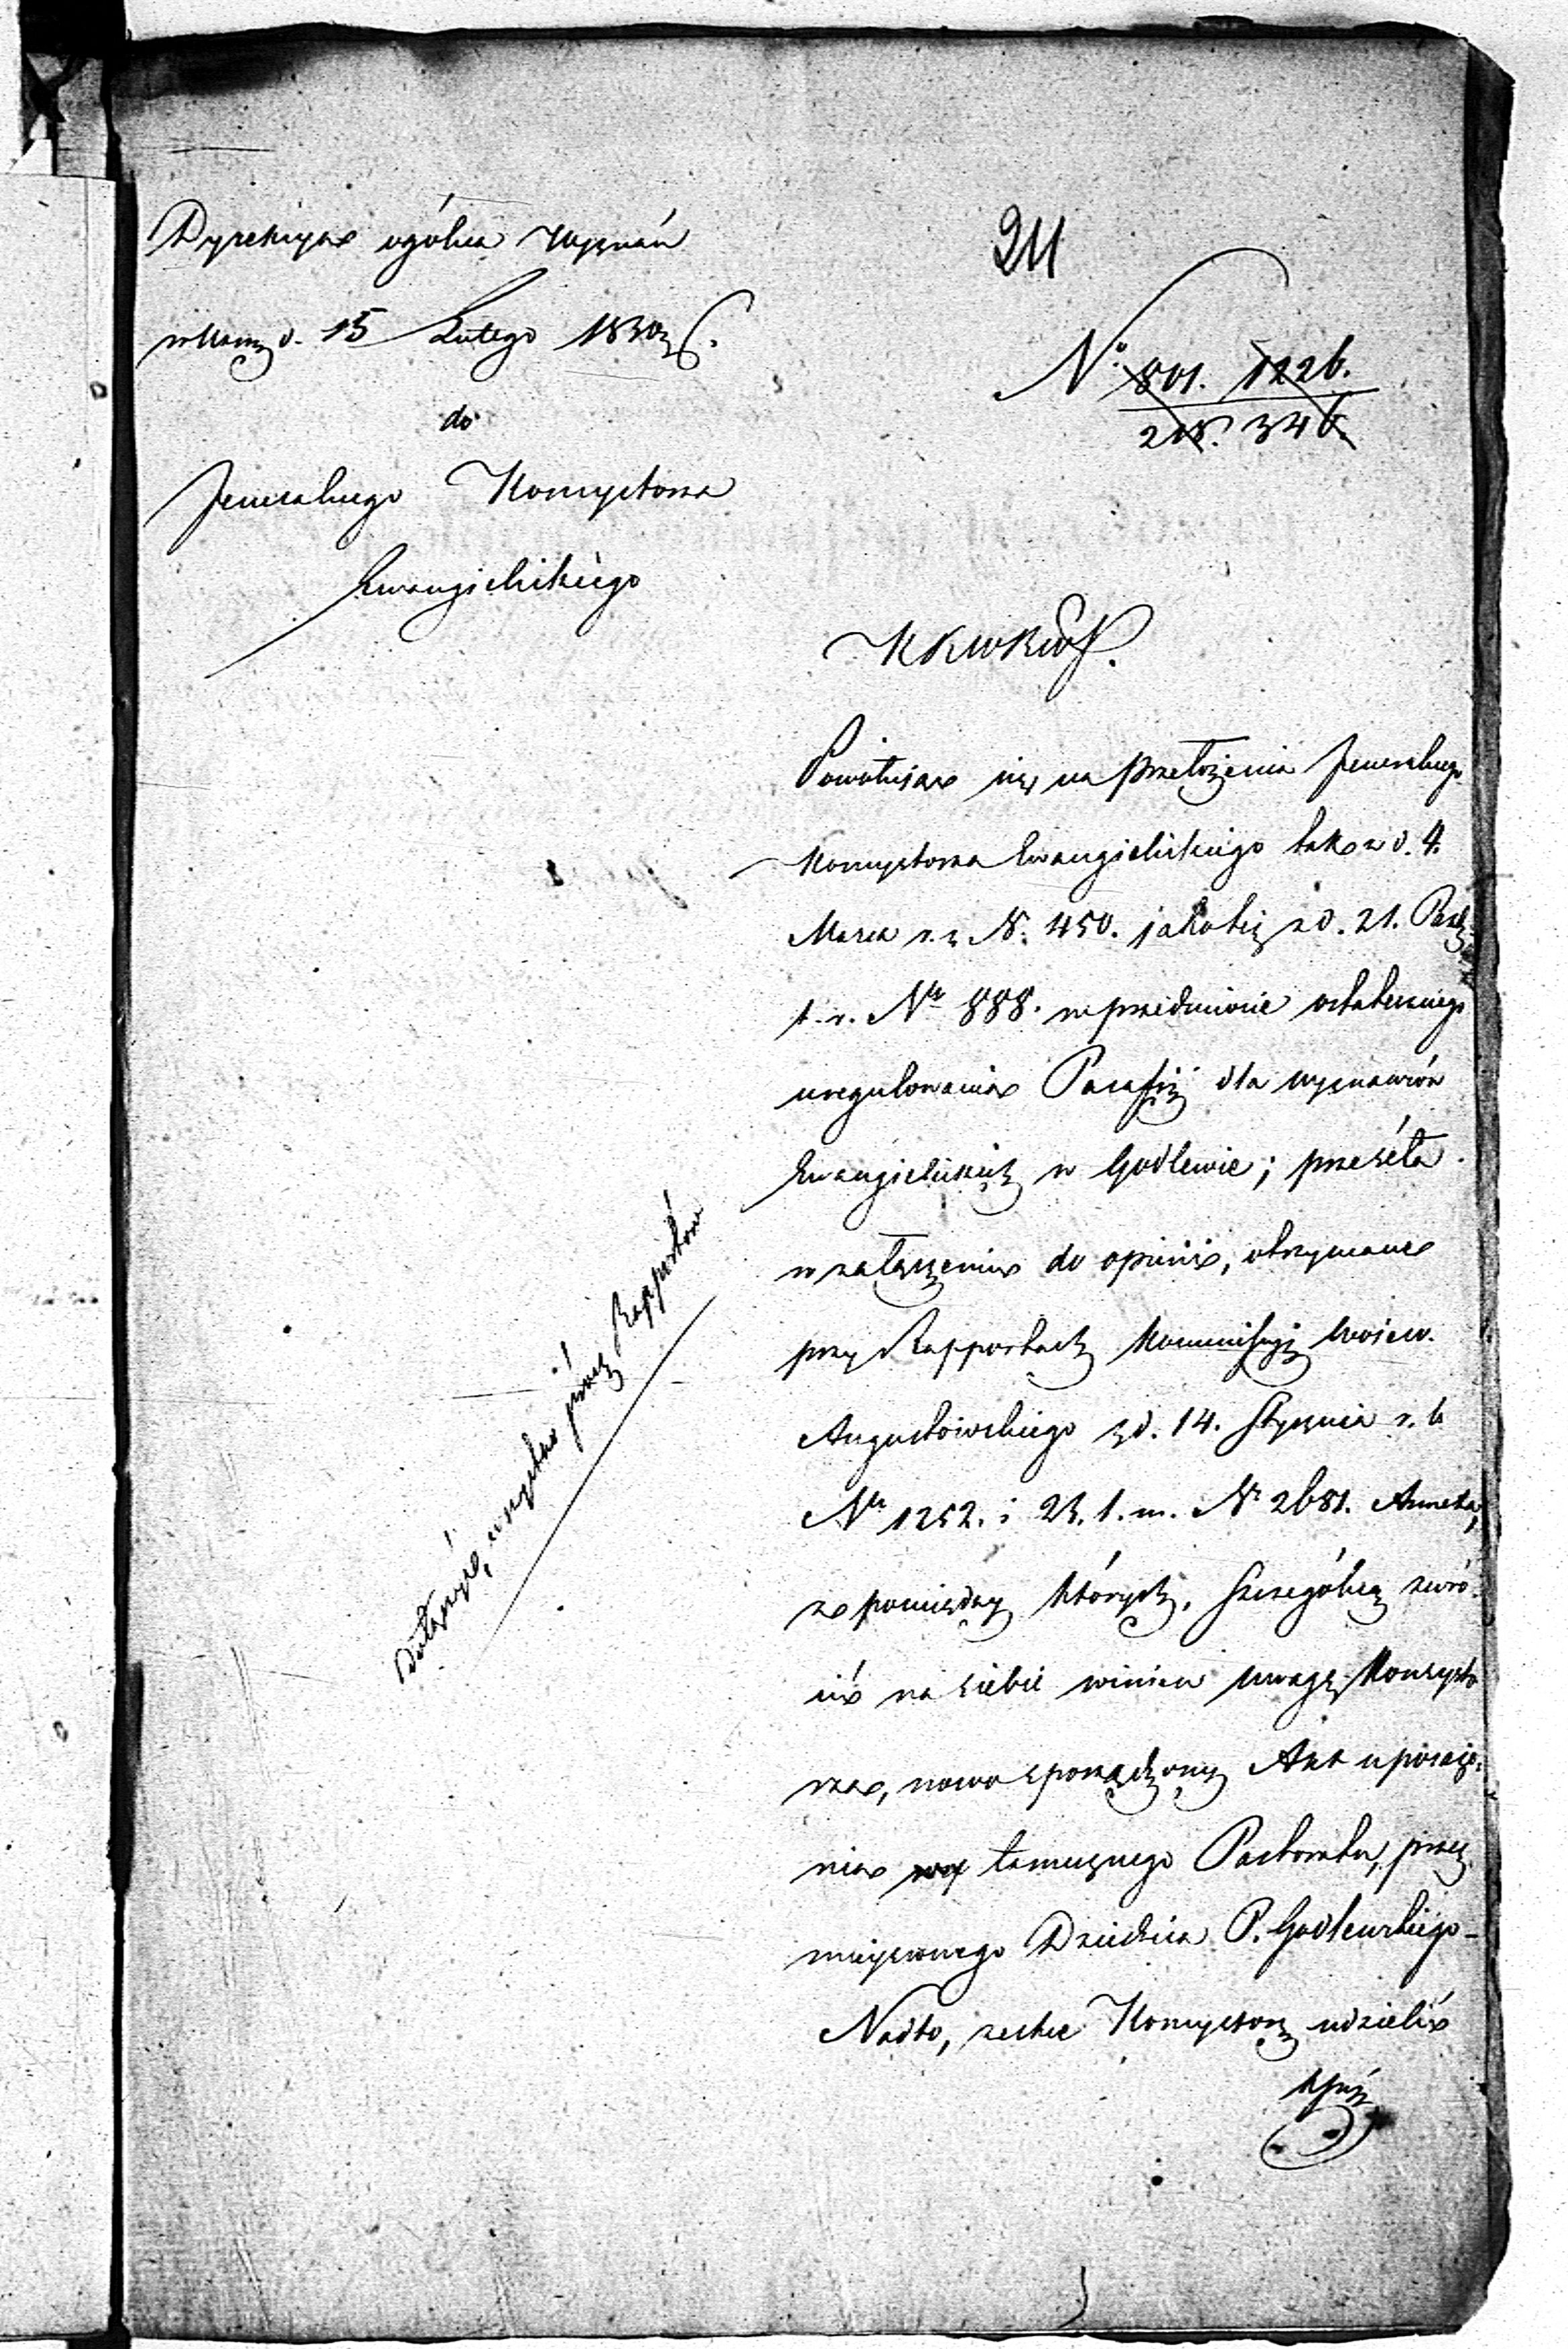 Dyrekcya ogólna Wyznań
w Warsz. d. 15 Lutego 1830 r.
do
Jeneralnego Konsystorza
Ewangielickiego
211
No 801. 1226.
218. 346.
KRWRiOP.
Powołując się na przełożenia Jeneralnego
Konsystorza Ewangielickiego tak z d. 4.
Marca r. z. N. 450. jakoteż z d. 21. Paźdz.
t. r. Nr 888. w przedmiocie ostatecznego
uregulowania Parafij dla wyznawców
Ewangielickich w Godlewie; przeséła
w załączeniu do opinii, otrzymane
przy Rapportach Kommissyi Wojew.
Augustowskiego z d. 14. Stycznia r. b.
Nr 1252. i 23. t. m. Nr 2681. Anneka,
z pomiędzy których, szczególną zwró-
cić na siebie winien uwagę Konsysto
rza, nowo sporządzony Akt uposaże-
nia tamecznego Pastoratu, przez
miejscowego Dziedzica P. Godlewskiego -
Nadto, zechce Konsystorz udzielić
swéj
Dołączyć, wszystko prócz Rapportów